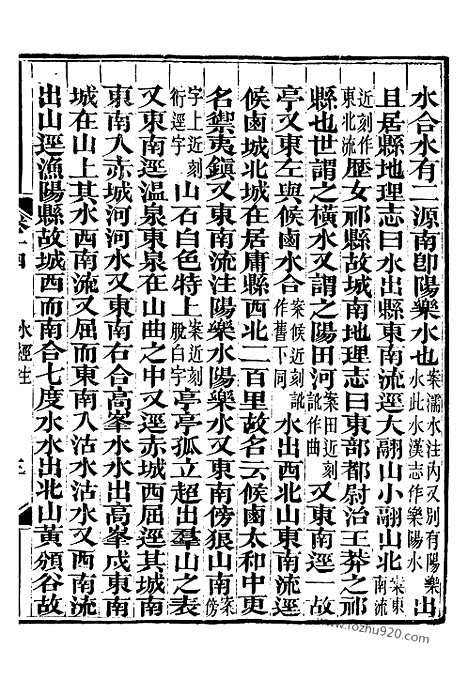 水合水有二源南卽陽樂水也案濡水注內又別有陽樂水此水漢志作樂陽水出
且居縣地理志曰水出縣東南流逕大翮山小翮山北案東南流近刻作東北流
歷女祁縣故城南地理志曰東部都尉治王莽之祁
縣也世謂之橫水又謂之陽田河案田近刻訛作曲又東南逕一故
亭又東左與候鹵水合案候近刻訛作舊下同水出西北山東南流逕
候鹵城北城在居庸縣西北二百里故名云候鹵太和中更
名禦夷鎮又東南流注陽樂水陽樂水又東南傍狼山南案傍字上近刻衍逕字
山石白色特上案近刻脫白字亭亭孤立超出羣山之表
又東南逕溫泉東泉在山曲之中又逕赤城西屈逕其城南
東南入赤城河河水又東南右合高峯水水出高峯戍東南
城在山上其水西南流又屈而東南入沽水沽水又西南流
出山逕漁陽縣故城西而南合七度水水出北山黃頒谷故
卷十四
水經注
三
www.rozhu920.com